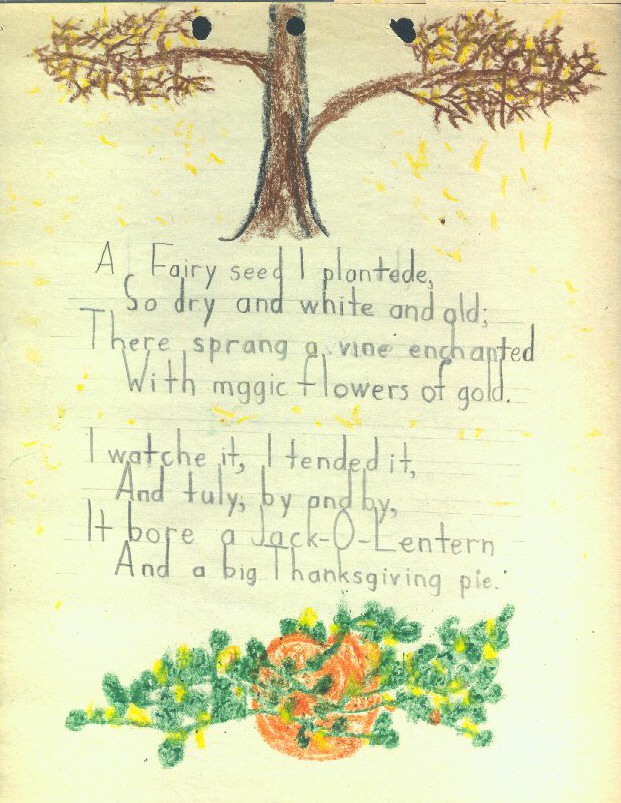 A Fairy seed I plantede,
So dry and white and old;
There sprang a vine enchanted
With mggic flowers of gold.
I watche it, I tended it,
And tuly, by and by,
It bore a Jack-O-Lentern
And a big Thanksgiving pie.